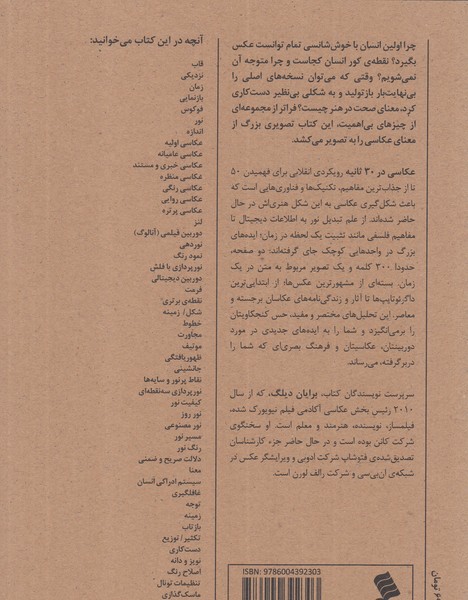 چرا اولین انسان با خوش‌شانسی تمام توانست عکس
بگیرد؟ نقطه‌ی کور انسان کجاست و چرا متوجه آن
نمی‌شویم؟ وقتی که می‌توان نسخه‌های اصلی را
بی‌نهایت‌بار بازتولید و به شکلی بی‌نظیر دست‌کاری
کرد، معنای صحت در هنر چیست؟ فراتر از مجموعه‌ای
از چیزهای بی‌اهمیت، این کتاب تصویری بزرگ از
معنای عکاسی را به تصویر می‌کشد.
عکاسی در ۳۰ ثانیه رویکردی انقلابی برای فهمیدن ۵۰
تا از جذاب‌ترین مفاهیم، تکنیک‌ها و فناوری‌هایی است که
باعث شکل‌گیری عکاسی به این شکل هنری‌اش در حال
حاضر شده‌اند. از علم تبدیل نور به اطلاعات دیجیتال تا
مفاهیم فلسفی مانند تثبیت یک لحظه در زمان؛ ایده‌های
بزرگ در واحدهایی کوچک جای گرفته‌اند؛ دو صفحه،
حدودا ۳۰۰ کلمه و یک تصویر مربوط به متن در یک
زمان. بسته‌ای از مشهورترین عکس‌ها؛ از ابتدایی‌ترین
داگرئوتایپ‌ها تا آثار و زندگی‌نامه‌های عکاسان برجسته و
معاصر. این تحلیل‌های مختصر و مفید، حس کنجکاویتان
را برمی‌انگیزد و شما را به ایده‌های جدیدی در مورد
دوربینتان، عکاسیتان و فرهنگ بصری‌ای که شما را
دربرگرفته، می‌رساند.
سرپرست نویسندگان کتاب، برایان دیلگ، که از سال
۲۰۱۰ رئیس بخش عکاسی آکادمی فیلم نیویورک شده،
فیلمساز، نویسنده، هنرمند و معلم است. او سخنگوی
شرکت کانن بوده است و در حال حاضر جزء کارشناسان
تصدیق‌شده‌ی فتوشاپ شرکت ادوبی و ویرایشگر عکس در
شبکه‌ی ان‌بی‌سی و شرکت رالف لورن است.
آنچه در این کتاب می‌خوانید:
قاب
نزدیکی
زمان
بازنمایی
فوکوس
نور
اندازه
عکاسی اولیه
عکاسی عامیانه
عکاسی خبری و مستند
عکاسی منظره
عکاسی رنگی
عکاسی روایی
عکاسی پرتره
لنز
دوربین فیلمی (آنالوگ)
نوردهی
نمود رنگ
نورپردازی با فلش
دوربین دیجیتالی
فرمت
نقطه‌ی برتری
شکل/ زمینه
خطوط
مجاورت
موتیف
ظهوریافتگی
جانشینی
نقاط پرنور و سایه‌ها
نورپردازی سه‌نقطه‌ای
کیفیت نور
نور روز
نور مصنوعی
مسیر نور
رنگ نور
دلالت صریح و ضمنی
معنا
سیستم ادراکی انسان
غافلگیری
توجه
زمینه
بازتاب
تکثیر/ توزیع
دست‌کاری
نویز و دانه
اصلاح رنگ
تنظیمات تونال
ماسک‌گذاری
ISBN: 9786004392303
تومان